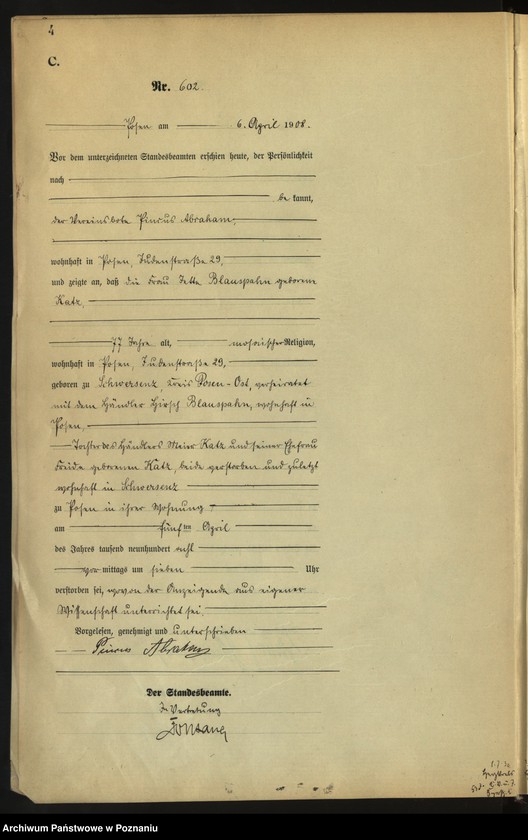 4
C.
Nr. 602.
Posen am 6. April 1908.
Vor dem unterzeichneten Standesbeamten erschien heute, der Persönlichkeit
nach
be kannt,
der Vereinsbote Pincus Abraham,
wohnhaft in Posen, Judenstraße 29,
und zeigte an, daß die Frau Jette Blauspahn geborene
Katz,
77 Jahre alt, mosaischer Religion,
wohnhaft in Posen, Judenstraße 29,
geboren zu Schwersenz, Kreis Posen-Ost, verheiratet
mit dem Händler Hirsch Blauspahn, wohnhaft in
Posen,
Tochter des Händlers Meier Katz und seiner Ehefrau
Freide geborenen Katz, beide verstorben und zuletzt
wohnhaft in Schwersenz
zu Posen in ihrer Wohnung
am fünften April
des Jahres tausend neunhundert acht
vor mittags um sieben Uhr
verstorben sei, wovon der Anzeigende aus eigener
Wissenschaft unterrichtet sei.
Vorgelesen, genehmigt und unterschrieben
Pincus Abraham
Der Standesbeamte.
In Vertretung
Archiwum Państwowe w Poznaniu